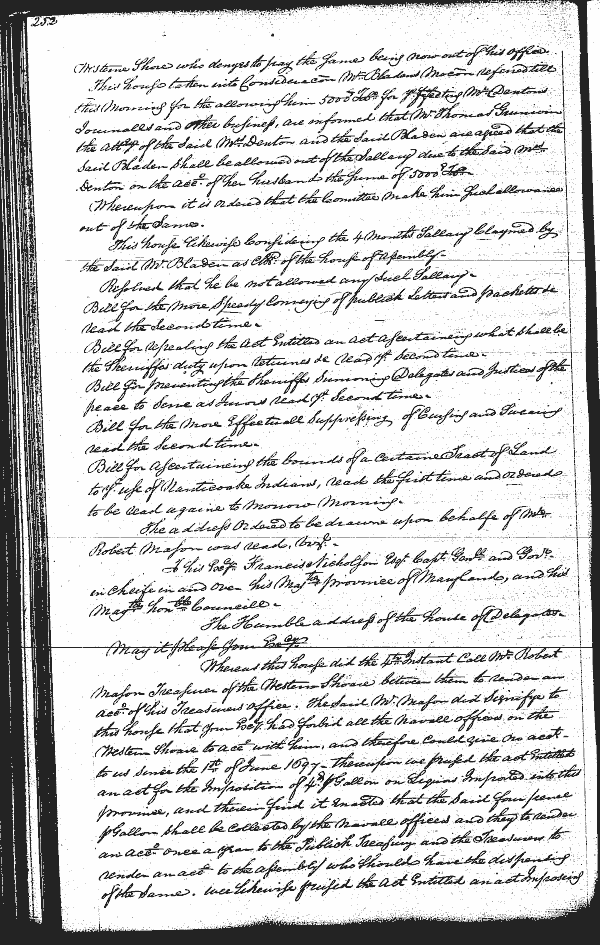 252
Westerne Shore who denyes to pay the same being now out of his office
This house taken into Consideracon Mr. Bladens Mocon referred till
this Morning for the allowing him 5000 Tobo. for perfecting Mr. Dentons
Journalls and other business, are informed that Mr. Thomas Grunwin
the Atty. of the Said Mrs. Denton and the Said Bladen are agreed that the
Said Bladen shall be allowed out of the Sallary due to the Said Mrs.
Denton on the acct. of her husband the Sume of 5000 Tobo.
Whereupon it is ordered that the Comittee make him such allowance
out of the Same.
This house likewise Considering the 4 Months Sallary Claymed by
the Said Mr. Bladen as Clk. of the house of Assembly.
Resolved that he be not allowed any such Sallary.
Bill for the more Speedy Conveying of publick Letters and packetts &c
read the Second time.
Bill for repealing the Act Entitled an act ascertaineing what shall be
the Sheriffes duty upon returnes &c read ye Second time.
Bill for preventing the Sheriffes Sumoning Delegates and Justices of the
peace to Serve as Jurors read ye Second time.
Bill for the More Effectuall Suppressing of Cursing and Swearing
read the Second time.
Bill for ascertaineing the bounds of a Certaine Tract of Land
to ye use of Nanticoake Indians, read the first time and ordered
to be read againe to Morrow Morning.
The address Ordered to be drawne upon behalfe of Mr.
Robert Mason was read. Vizt.
To his Excy. Francis Nicholson Esqr. Capt. Genll. and Govr.
in Cheife in and over his Majtys province of Maryland, and his
Majtys honble Councill.
The Humble address of the house of Delegates
May it please Your Excy.
Whereas this house did the 4th Instant Call Mr. Robert
Mason Treasurer of the Western Shoare before them to render an
acct. of his Treasurers office. the Said Mr. Mason did Signifye to
this house that Your Excy. had forbid all the Navall officers on the
Western Shoare to acct with him, and therefore Could give no acct.
to us Since the 1st of June 1697. thereupon we prused the act Entitled
an act for the Imposition of 4d p Gallon on Liquors Imported into this
province, and therein find it Enacted that the Said four pence
p Gallon shall be Collected by the Navall officers and they to render
an acct. once a year to the Publick Treasury and the Treasurers to
render an acct. to the assembly who should have the dispending
of the Same. wee likewise prused the Act Entitled an act Imposing